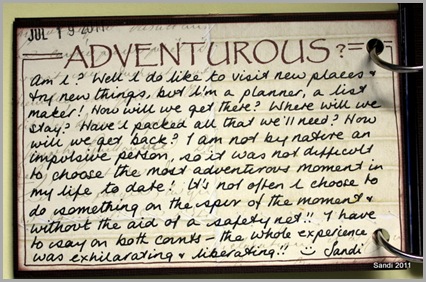 JUL 19 2011
ADVENTUROUS?
Am I? Well I do like to visit new places &
try new things, but I'm a planner, a list
maker! How will we get there? Where will we
stay? Have I packed all that we'll need? How
will we get back? I am not by nature an
impulsive person, so it was not difficult
to choose the most adventurous moment in
my life to date! It's not often I choose to
do something on the spur of the moment &
without the aid of a safety net!! I have
to say on both counts - the whole experience
was exhilarating & liberating!! ☺ Sandi
Sandi 2011